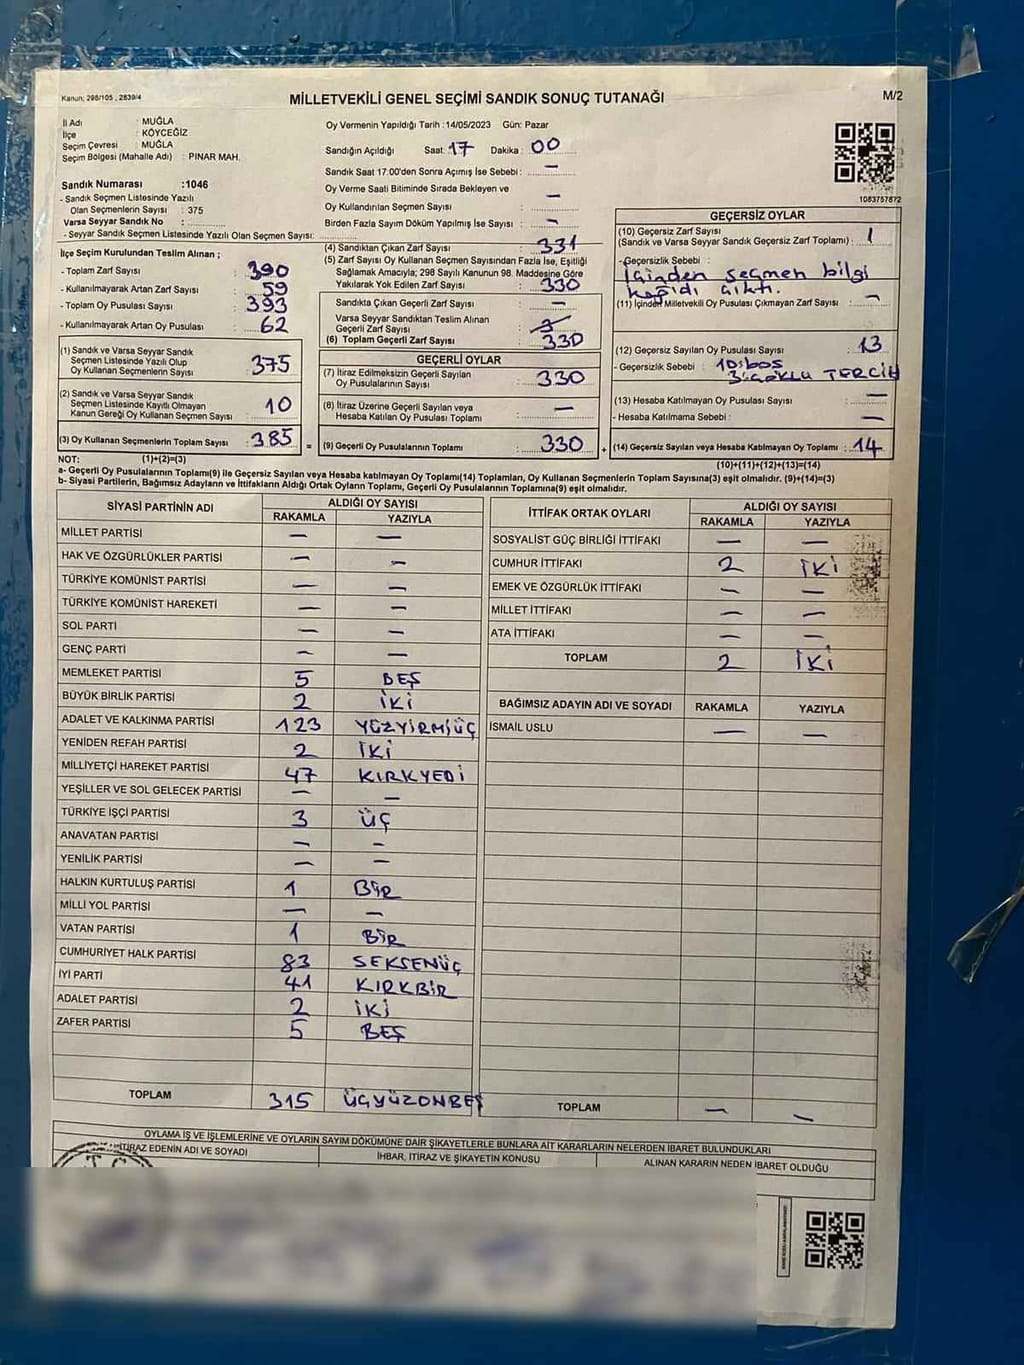 Kanun: 298/105 , 2839/4
MİLLETVEKİLİ GENEL SEÇİMİ SANDIK SONUÇ TUTANAĞI
M/2
İl Adı : MUĞLA
İlçe : KÖYCEĞİZ
Seçim Çevresi : MUĞLA
Seçim Bölgesi (Mahalle Adı) : PINAR MAH.
Oy Vermenin Yapıldığı Tarih :14/05/2023 Gün: Pazar
Sandığın Açıldığı Saat: 17 Dakika : 00
Sandık Saat 17:00'den Sonra Açılmış İse Sebebi : —
Oy Verme Saati Bitiminde Sırada Bekleyen ve
Oy Kullandırılan Seçmen Sayısı : —
Birden Fazla Sayım Döküm Yapılmış İse Sayısı : —
1083757872
Sandık Numarası :1046
- Sandık Seçmen Listesinde Yazılı
Olan Seçmenlerin Sayısı : 375
Varsa Seyyar Sandık No :
- Seyyar Sandık Seçmen Listesinde Yazılı Olan Seçmen Sayısı:
İlçe Seçim Kurulundan Teslim Alınan ;
- Toplam Zarf Sayısı : 390
- Kullanılmayarak Artan Zarf Sayısı : 59
- Toplam Oy Pusulası Sayısı : 393
- Kullanılmayarak Artan Oy Pusulası : 62
(1) Sandık ve Varsa Seyyar Sandık
Seçmen Listesinde Yazılı Olup
Oy Kullanan Seçmenlerin Sayısı : 375
(2) Sandık ve Varsa Seyyar Sandık
Seçmen Listesinde Kayıtlı Olmayan
Kanun Gereği Oy Kullanan Seçmen Sayısı : 10
(3) Oy Kullanan Seçmenlerin Toplam Sayısı : 385 =
(4) Sandıktan Çıkan Zarf Sayısı : 331
(5) Zarf Sayısı Oy Kullanan Seçmen Sayısından Fazla İse, Eşitliği
Sağlamak Amacıyla; 298 Sayılı Kanunun 98. Maddesine Göre
Yakılarak Yok Edilen Zarf Sayısı : 330
Sandıkta Çıkan Geçerli Zarf Sayısı : —
Varsa Seyyar Sandıktan Teslim Alınan
Geçerli Zarf Sayısı :
(6) Toplam Geçerli Zarf Sayısı : 330
GEÇERLİ OYLAR
(7) İtiraz Edilmeksizin Geçerli Sayılan
Oy Pusulalarının Sayısı : 330
(8) İtiraz Üzerine Geçerli Sayılan veya
Hesaba Katılan Oy Pusulası Toplamı : —
(9) Geçerli Oy Pusulalarının Toplamı : 330 +
GEÇERSİZ OYLAR
(10) Geçersiz Zarf Sayısı
(Sandık ve Varsa Seyyar Sandık Geçersiz Zarf Toplamı) : 1
- Geçersizlik Sebebi :
İçinden seçmen bilgi
kağıdı çıktı.
(11) İçinden Milletvekili Oy Pusulası Çıkmayan Zarf Sayısı : —
(12) Geçersiz Sayılan Oy Pusulası Sayısı : 13
- Geçersizlik Sebebi : 10:boş
3:ÇOKLU TERCİH
(13) Hesaba Katılmayan Oy Pusulası Sayısı : —
- Hesaba Katılmama Sebebi : —
(14) Geçersiz Sayılan veya Hesaba Katılmayan Oy Toplamı : 14
NOT: (1)+(2)=(3)
(10)+(11)+(12)+(13)=(14)
a- Geçerli Oy Pusulalarının Toplamı(9) ile Geçersiz Sayılan veya Hesaba katılmayan Oy Toplamı(14) Toplamları, Oy Kullanan Seçmenlerin Toplam Sayısına(3) eşit olmalıdır. (9)+(14)=(3)
b- Siyasi Partilerin, Bağımsız Adayların ve İttifakların Aldığı Ortak Oyların Toplamı, Geçerli Oy Pusulalarının Toplamına(9) eşit olmalıdır.
SİYASİ PARTİNİN ADI ALDIĞI OY SAYISI
RAKAMLA YAZIYLA
MİLLET PARTİSİ — —
HAK VE ÖZGÜRLÜKLER PARTİSİ — —
TÜRKİYE KOMÜNİST PARTİSİ — —
TÜRKİYE KOMÜNİST HAREKETİ — —
SOL PARTİ — —
GENÇ PARTİ — —
MEMLEKET PARTİSİ 5 BEŞ
BÜYÜK BİRLİK PARTİSİ 2 İKİ
ADALET VE KALKINMA PARTİSİ 123 YÜZYİRMİÜÇ
YENİDEN REFAH PARTİSİ 2 İKİ
MİLLİYETÇİ HAREKET PARTİSİ 47 KIRKYEDİ
YEŞİLLER VE SOL GELECEK PARTİSİ — —
TÜRKİYE İŞÇİ PARTİSİ 3 ÜÇ
ANAVATAN PARTİSİ — —
YENİLİK PARTİSİ — —
HALKIN KURTULUŞ PARTİSİ 1 BİR
MİLLİ YOL PARTİSİ — —
VATAN PARTİSİ 1 BİR
CUMHURİYET HALK PARTİSİ 83 SEKSENÜÇ
İYİ PARTİ 41 KIRKBİR
ADALET PARTİSİ 2 İKİ
ZAFER PARTİSİ 5 BEŞ
TOPLAM 315 ÜÇYÜZONBEŞ
İTTİFAK ORTAK OYLARI ALDIĞI OY SAYISI
RAKAMLA YAZIYLA
SOSYALİST GÜÇ BİRLİĞİ İTTİFAKI — —
CUMHUR İTTİFAKI 2 İKİ
EMEK VE ÖZGÜRLÜK İTTİFAKI — —
MİLLET İTTİFAKI — —
ATA İTTİFAKI — —
TOPLAM 2 İKİ
BAĞIMSIZ ADAYIN ADI VE SOYADI RAKAMLA YAZIYLA
İSMAİL USLU — —
TOPLAM — —
OYLAMA İŞ VE İŞLEMLERİNE VE OYLARIN SAYIM DÖKÜMÜNE DAİR ŞİKAYETLERLE BUNLARA AİT KARARLARIN NELERDEN İBARET BULUNDUKLARI
İTİRAZ EDENİN ADI VE SOYADI
İHBAR, İTİRAZ VE ŞİKAYETİN KONUSU
ALINAN KARARIN NEDEN İBARET OLDUĞU
T.C.